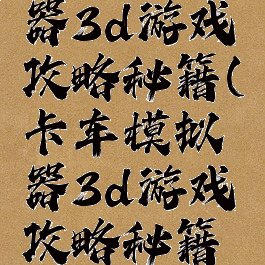 器3d游戏
攻略秘籍(
卡车模拟
器3d游戏
攻略秘籍